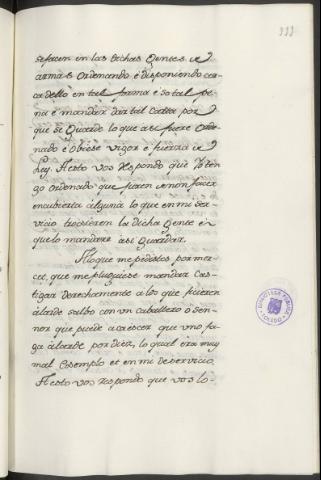 333
se facen en las dichas Gentes de
armas Ordenando é disponiendo cer-
ca dello en tal forma é so tal pe-
na é mandar dar tal Carta por
que se Guarde lo que asi fuere Orde-
nado é Obiese vigor é fuerza de
Ley. A esto vos respondo que Yo ten-
go ordenado que juren é non facer
encubierta alguna lo que en mi ser-
vicio truxieren la dicha Gente é
que lo mandare asi Guardar.
A lo que me pedistes por mer-
cet, que me pluguiese mandar Cas-
tigar derechamente á los que ficieren
alarde salbo con un caballero o sen-
nor que puede acaescer que uno fa-
ga alarde por diez, lo qual era muy
mal Exemplo et en mi deservicio.
A esto vos respondo que vos lo-
TOLEDO